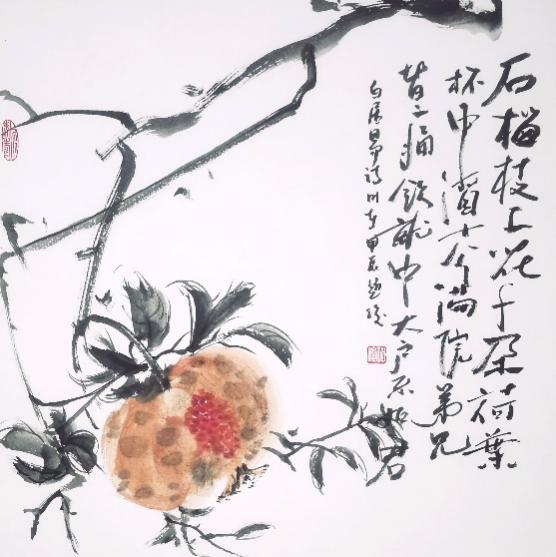 石榴枝上花千朵荷葉
杯中酒十分滿院弟兄
皆痛飲就中大户不如君
白居易诗 甲辰